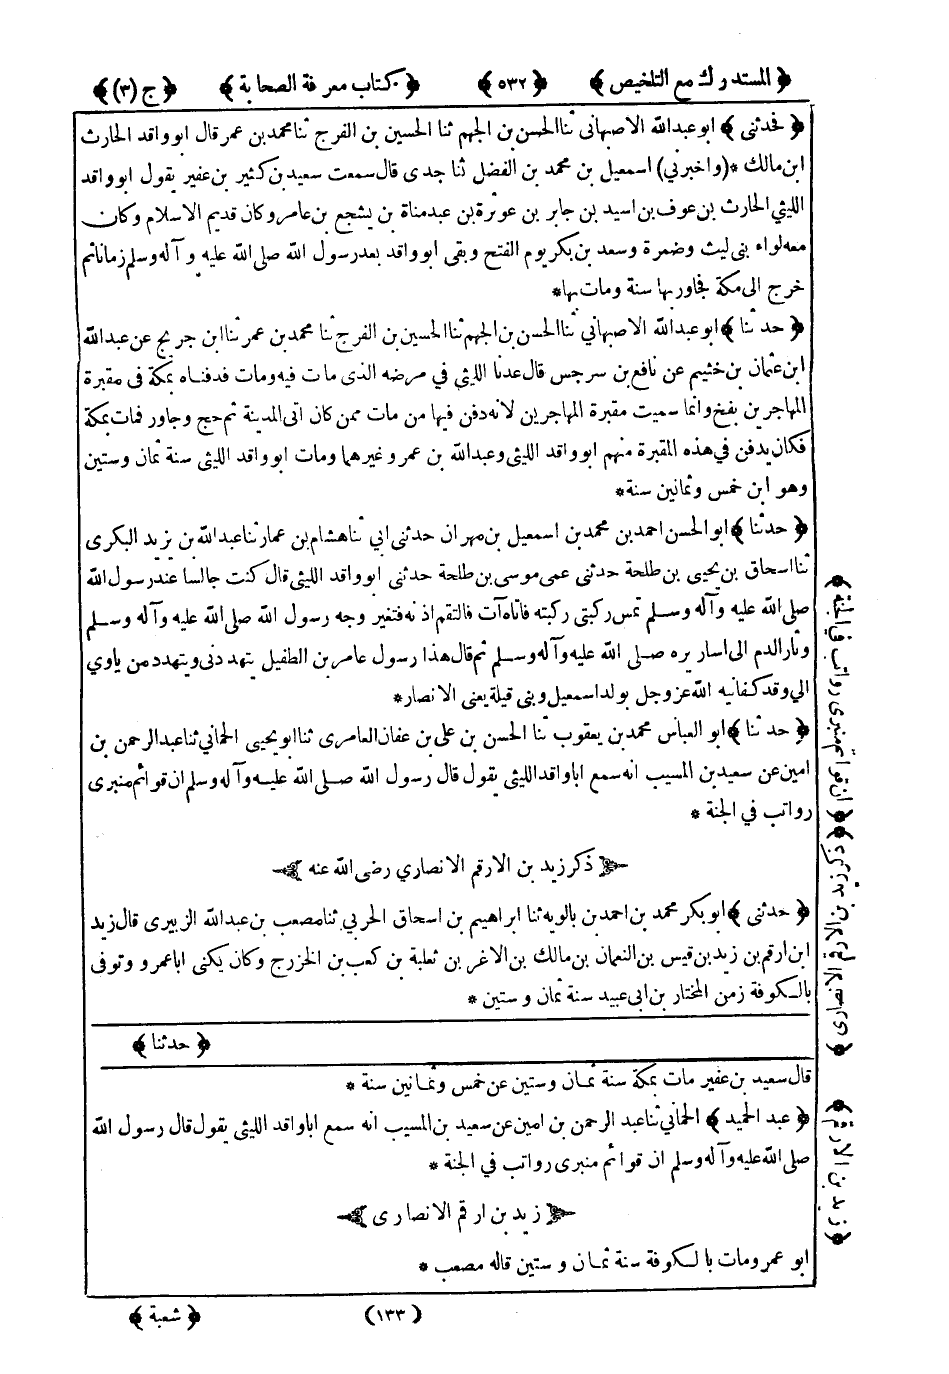 ﴿ المستدرك مع التلخيص ﴾ ﴿ ٥٣٢ ﴾ ﴿ كتاب معرفة الصحابة ﴾ ﴿ ج (٣) ﴾
﴿ فحدثني ﴾ ابو عبدالله الاصبهاني ثنا الحسن بن الجهم ثنا الحسين بن الفرج ثنا محمد بن عمر قال ابو واقد الحارث
ابن مالك *(واخبرني) اسمعيل بن محمد بن الفضل ثنا جدى قال سمعت سعيد بن كثير بن عفير يقول ابو واقد
الليثي الحارث بن عوف بن اسيد بن جابر بن عوثرة بن عبد مناة بن يشجع بن عامر وكان قديم الاسلام وكان
معه لواء بنى ليث وضمرة وسعد بن بكر يوم الفتح وبقى ابو واقد بعد رسول الله صلى الله عليه وآله وسلم زمانا ثم
خرج الى مكة فجاور بها سنة ومات بها*
﴿ حدثنا ﴾ ابو عبدالله الاصبهاني ثنا الحسن بن الجهم ثنا الحسين بن الفرج ثنا محمد بن عمر ثنا ابن جريج عن عبدالله
ابن عثمان بن خثيم عن نافع بن سرجس قال عدنا الليثي في مرضه الذى مات فيه ومات فدفناه بمكة فى مقبرة
المهاجرين بفخ وانما سميت مقبرة المهاجرين لانه دفن فيها من مات ممن كان اتى المدينة ثم حج وجاور فمات بمكة
فكان يدفن في هذه المقبرة منهم ابو واقد الليثي وعبدالله بن عمر وغيرهما ومات ابو واقد الليثي سنة ثمان وستين
وهو ابن خمس وثمانين سنة*
﴿ حدثنا ﴾ ابو الحسن احمد بن محمد بن اسمعيل بن مهران حدثنى ابي ثنا هشام بن عمار ثنا عبدالله بن يزيد البكرى
ثنا اسحاق بن يحيى بن طلحة حدثنى عمى موسى بن طلحة حدثنى ابو واقد الليثي قال كنت جالسا عند رسول الله
صلى الله عليه وآله وسلم تمس ركبتى ركبته فاتاه آت فالتقم اذنه فتغير وجه رسول الله صلى الله عليه وآله وسلم
وثار الدم الى اساريره صلى الله عليه وآله وسلم ثم قال هذا رسول عامر بن الطفيل يتهددنى ويتهدد من ياوي
الي وقد كفانيه الله عز وجل بولد اسمعيل وبنى قيلة يعنى الانصار*
﴿ حدثنا ﴾ ابو العباس محمد بن يعقوب ثنا الحسن بن على بن عفان العامرى ثنا ابو يحيى الحماني ثنا عبدالرحمن بن
امين عن سعيد بن المسيب انه سمع ابا واقد الليثي يقول قال رسول الله صلى الله عليه وآله وسلم ان قوائم منبرى
رواتب في الجنة *
ذكر زيد بن الارقم الانصاري رضى الله عنه
﴿ حدثنى ﴾ ابو بكر محمد بن احمد بن بالويه ثنا ابراهيم بن اسحاق الحربي ثنا مصعب بن عبدالله الزبيرى قال زيد
ابن ارقم بن زيد بن قيس بن النعمان بن مالك بن الاغر بن ثعلبة بن كعب بن الخزرج وكان يكنى ابا عمرو وتوفى
بالكوفة زمن المختار بن ابى عبيد سنة ثمان وستين *
﴿ حدثنا ﴾
قال سعيد بن عفير مات بمكة سنة ثمان وستين عن خمس وثمانين سنة *
﴿ عبد الحميد ﴾ الحماني ثنا عبد الرحمن بن امين عن سعيد بن المسيب انه سمع ابا واقد الليثي يقول قال رسول الله
صلى الله عليه وآله وسلم ان قوائم منبرى رواتب في الجنة *
زيد بن ارقم الانصارى
ابو عمر ومات بالكوفة سنة ثمان وستين قاله مصعب *
﴿ ان قوائم منبرى رواتب في الجنة ﴾
﴿ ذكر زيد بن الارقم الانصارى ﴾
﴿ زيد بن الارقم ﴾
(١٣٣) ﴿ شعبة ﴾